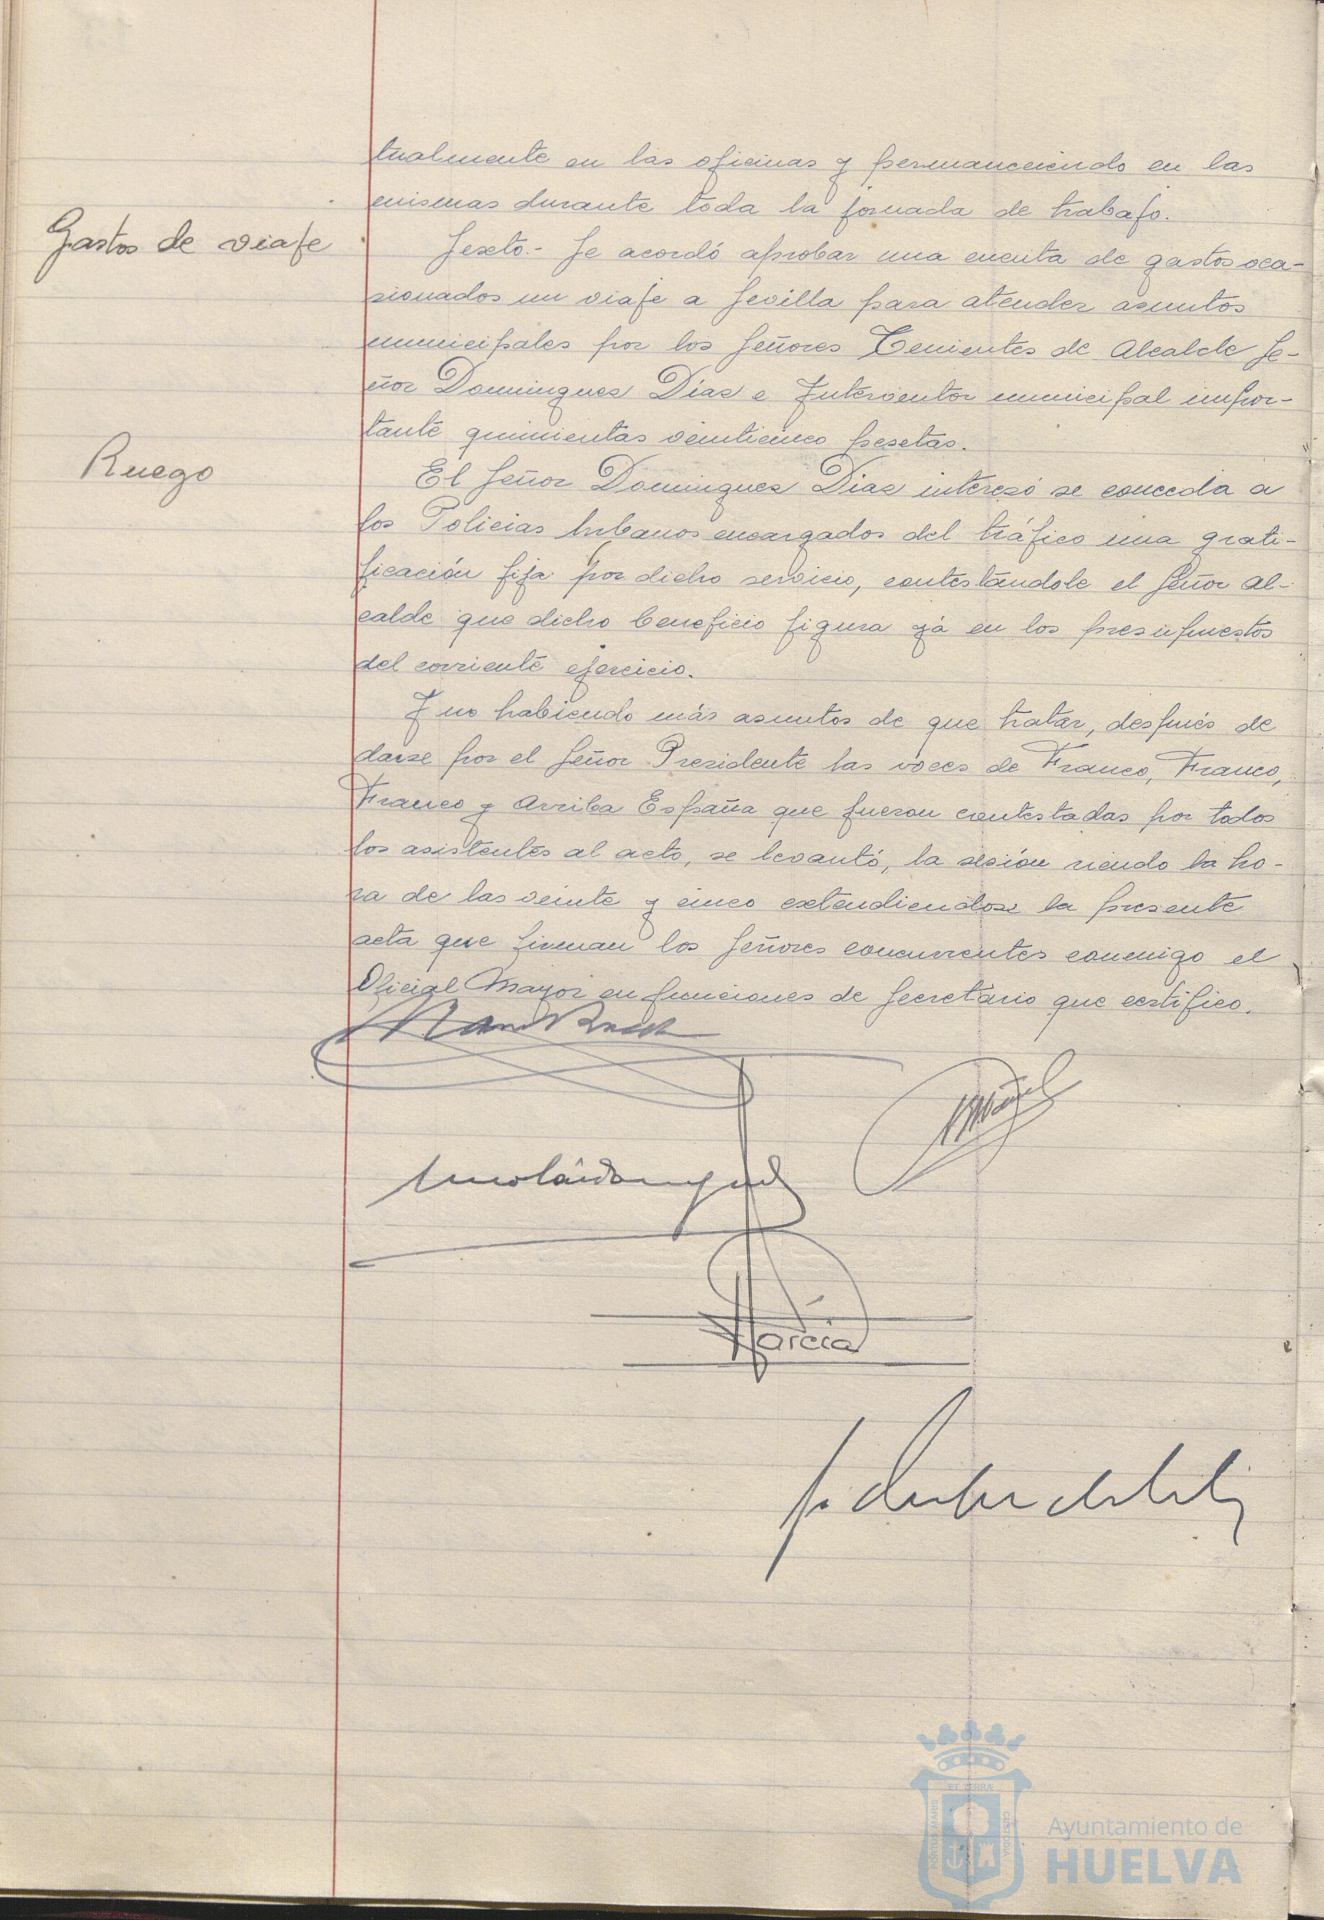 tualmente en las oficinas y permaneciendo en las
mismas durante toda la jornada de trabajo.
Gastos de viaje
Sexto.- Se acordó aprobar una cuenta de gastos oca-
sionados un viaje a Sevilla para atender asuntos
municipales por los Señores Tenientes de Alcalde Se-
ñor Dominguez Díaz e Interventor municipal impor-
tante quinientas veinticinco pesetas.
Ruego
El Señor Dominguez Díaz interesó se conceda a
los Policias Urbanos encargados del tráfico una grati-
ficación fija por dicho servicio, contestándole el Señor Al-
calde que dicho beneficio figura yá en los presupuestos
del corriente ejercicio.
Y no habiendo más asuntos de que tratar, después de
darse por el Señor Presidente las voces de Franco, Franco,
Franco y Arriba España que fueron contestadas por todos
los asistentes al acto, se levantó, la sesión siendo la ho-
ra de las veinte y cinco extendiendose la presente
acta que firman los Señores concurrentes conmigo el
Oficial Mayor en funciones de Secretario que certifico.
García
ET TERRÆ
PORTUS MARIS
CUSTODIA
Ayuntamiento de
HUELVA